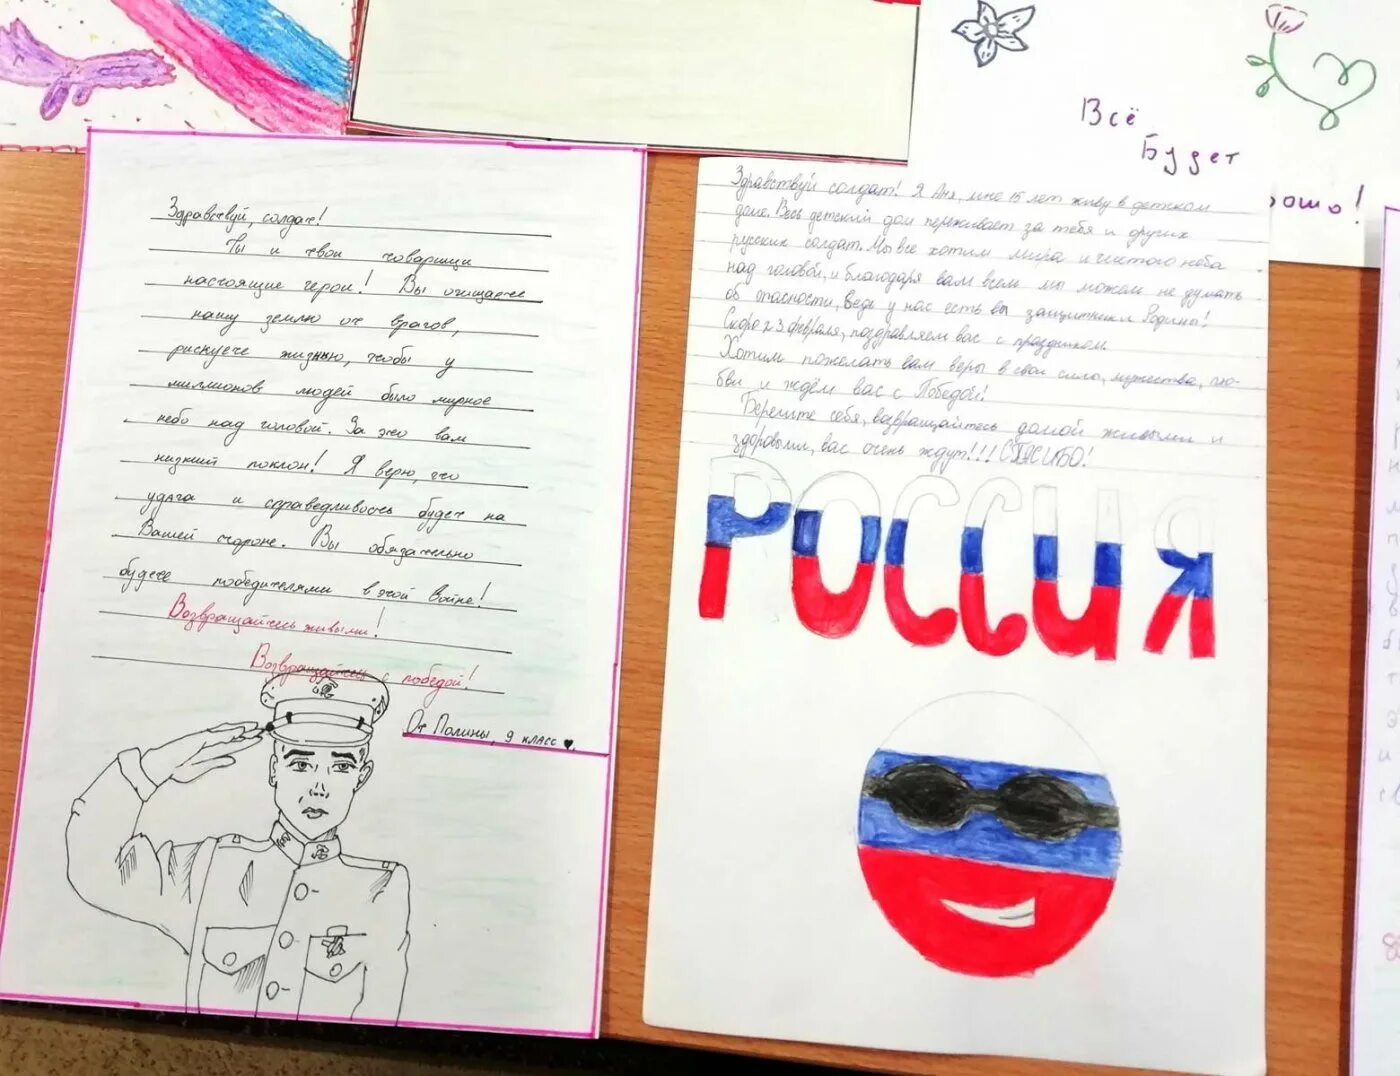 Всё
Будет
ошо!
Здравствуй, солдат!
Ты и твои товарищи
настоящие герои! Вы очищаете
нашу землю от врагов,
рискуете жизнью, чтобы у
миллионов людей было мирное
небо над головой. За это вам
низкий поклон! Я верю, что
удача и справедливость будет на
Вашей стороне. Вы обязательно
будете победителями в этой войне!
Возвращайтесь живыми!
Возвращайтесь с победой!
От Полины, 9 класс
Здравствуй солдат! Я Аня, мне 15 лет живу в детском
доме. Весь детский дом переживает за тебя и других
русских солдат. Мы все хотим мира и чистого неба
над головой, и благодаря вам всем мы можем не думать
об опасности, Ведь у нас есть вы защитники Родины!
Скоро 23 февраля, поздравляем вас с праздником.
Хотим пожелать вам веры в свои силы, мужества, лю-
бви и ждём вас с Победой!
Берегите себя, возвращайтесь домой живыми и
здоровыми, вас очень ждут!!! СПАСИБО!
РОССИЯ